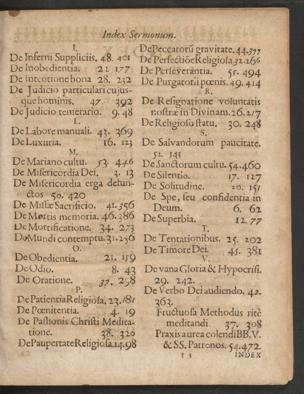 Index Sermonum.
I.
De Inferni Suppliciis, 48. 401
De Inobedientia. 21. 177
De intentione bona 28. 232
De Judicio particulari cujus-
que hominis. 47. 392
De Judicio temerario. 9. 48
L.
De Labore manuali. 43. 369
De Luxuria. 16. 123
M.
De Mariano cultu. 53. 446
De Misericordia Dei. 3. 13
De Misericordia erga defun-
ctos 50. 420
De Missæ Sacrificio. 41. 356
De Mortis memoria. 46. 386
De Mortificatione. 34. 273
De Mundi contemptu. 31. 256
O.
De Obedientia. 21. 159
De Odio. 8. 43
De Oratione. 37. 298
P.
De Patientia Religiosa. 23. 181
De Pœnitentia. 4. 19
De Passionis Christi Medita-
tione. 38. 320
De Paupertate Religiosa. 14. 98
De Peccatorũ gravitate. 44. 377
De Perfectiõe Religiosa. 32. 266
De Perseverantia. 51. 494
De Purgatorii pœnis. 49. 414
R.
De Resignatione voluntatis
nostræ in Divinam. 26. 217
De Religioso statu. 30. 248
S.
De Salvandorum paucitate.
51. 141
De Sanctorum cultu. 54. 460
De Silentio. 17. 127
De Solitudine. 20. 151
De Spe, seu confidentia in
Deum. 6. 62
De Superbia. 12. 77
T.
De Tentationibus. 25. 202
De Timore Dei. 45. 381
V.
De vana Gloria & Hypocrisi.
29. 242.
De Verbo Dei audiendo. 42.
363.
Fructuosa Methodus ritè
meditandi 37. 308
Praxis aurea colendi BB. V.
& SS. Patronos. 54. 472.
INDEX